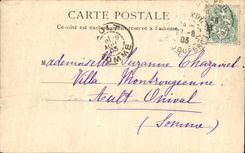 CARTE POSTALE
Ce côté est exclusivement réservé à l'adresse
Mademoiselle Suzanne Chagaviel
Villa Montrougienne
Ault-Onival
(Somme)